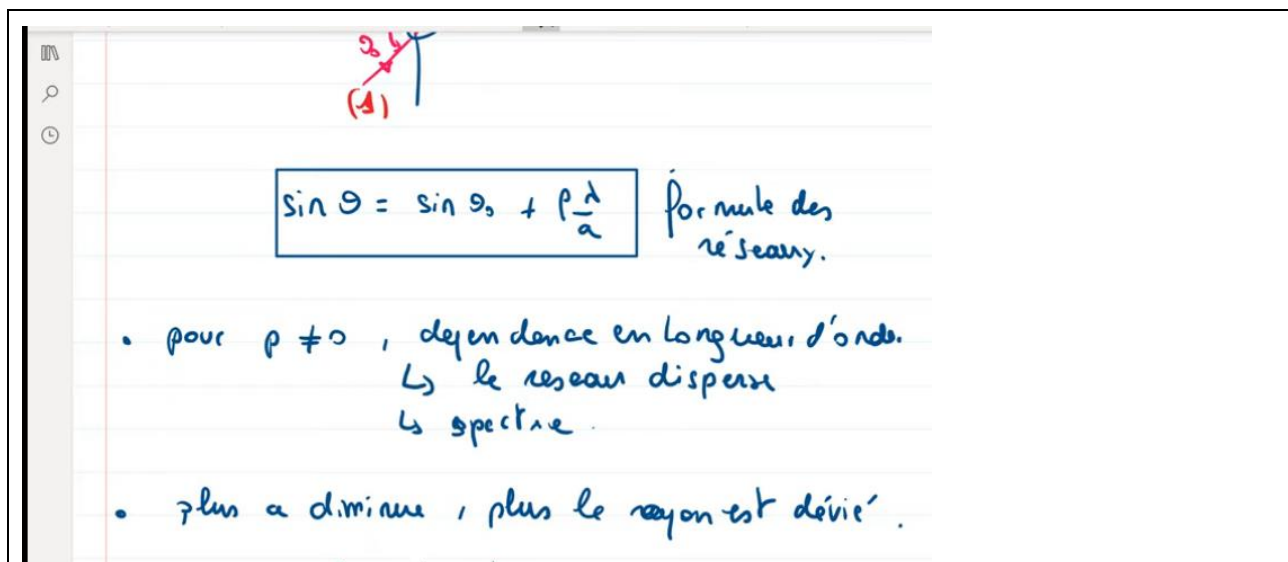 (1)
sin θ = sin θ₀ + p λ/a formule des
réseaux.
• pour p ≠ 0, dependance en longueur d'onde.
↳ le reseau disperse
↳ spectre.
• plus a diminue, plus le rayon est dévié.